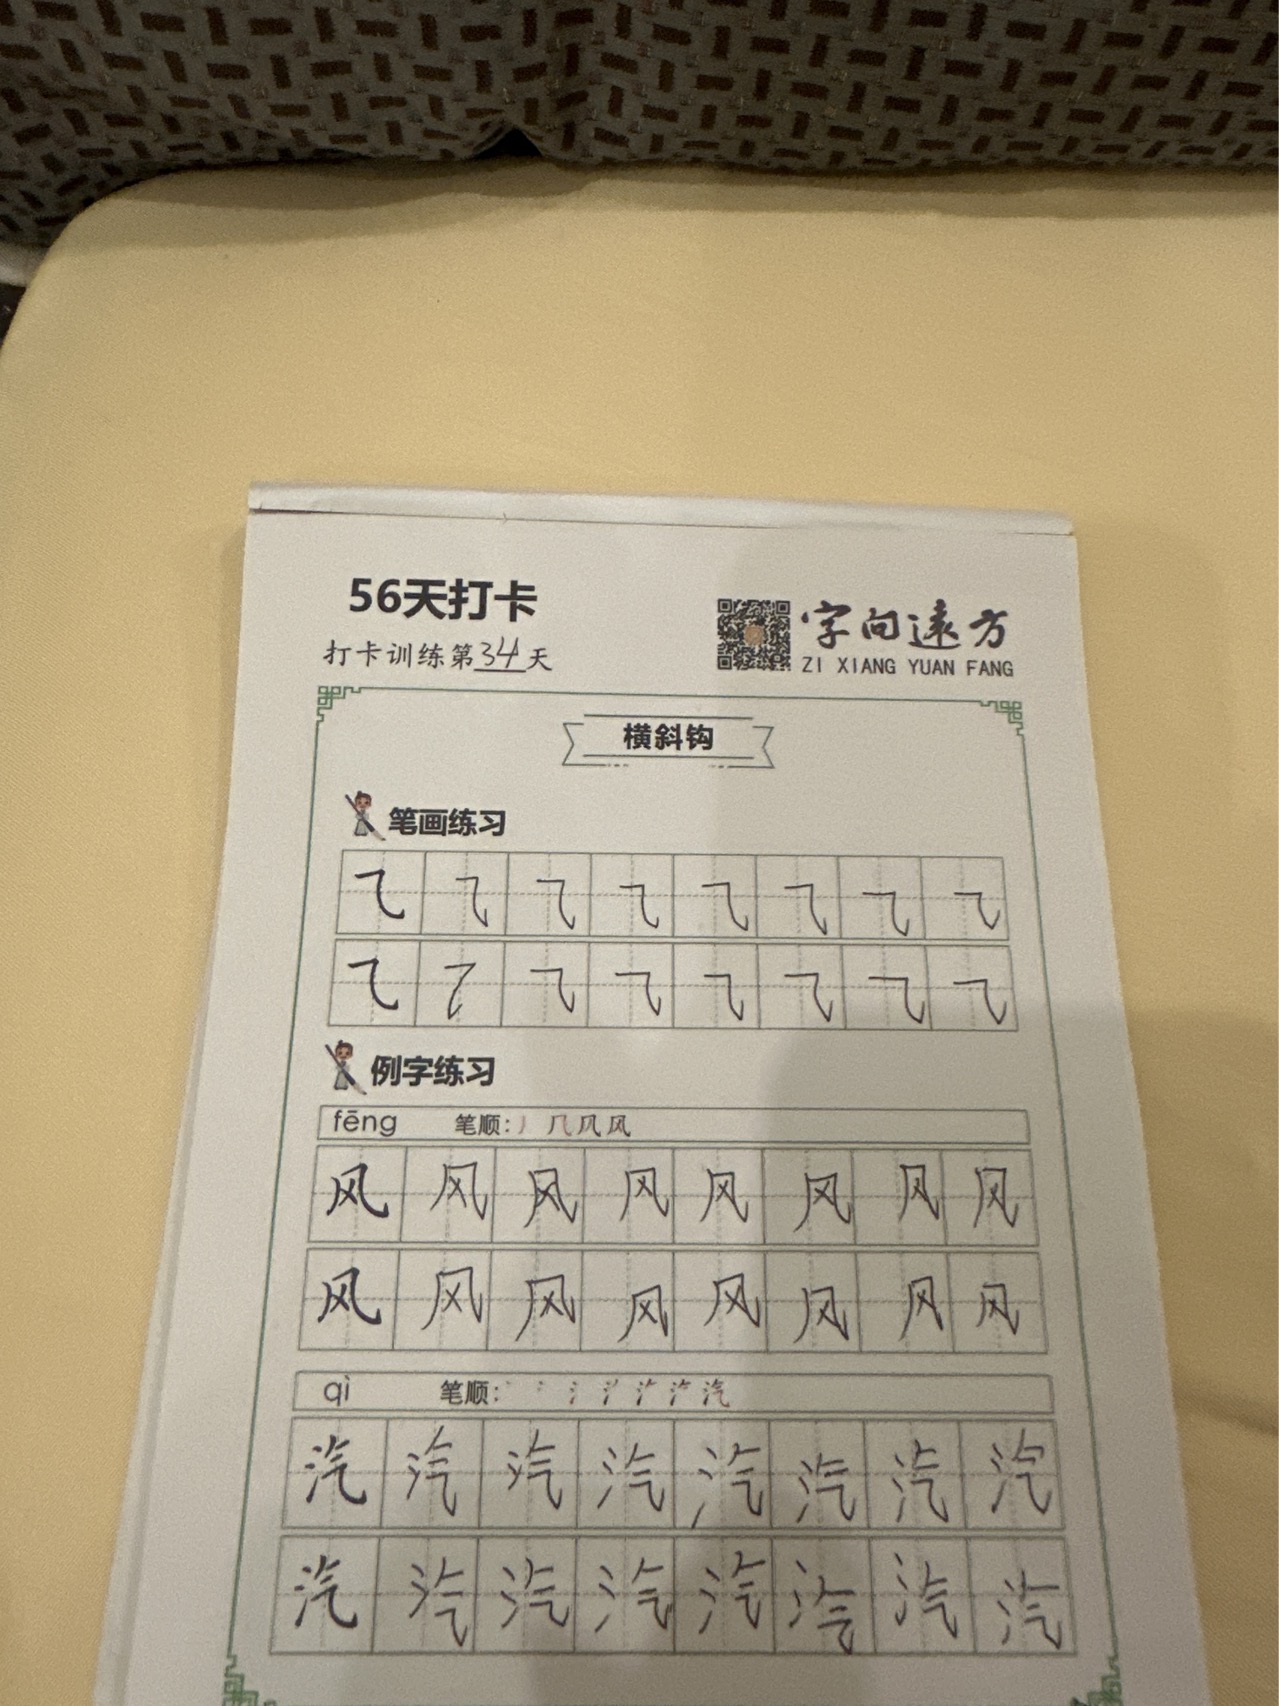 56天打卡
打卡训练第34天
字向远方
ZI XIANG YUAN FANG
横斜钩
笔画练习
⺄ ⺄ ⺄ ⺄ ⺄ ⺄ ⺄ ⺄
⺄ ⺄ ⺄ ⺄ ⺄ ⺄ ⺄ ⺄
例字练习
fēng 笔顺: 丿 几 风 风
风 风 风 风 风 风 风 风
风 风 风 风 风 风 风 风
qì 笔顺: 汽
汽 汽 汽 汽 汽 汽 汽 汽
汽 汽 汽 汽 汽 汽 汽 汽